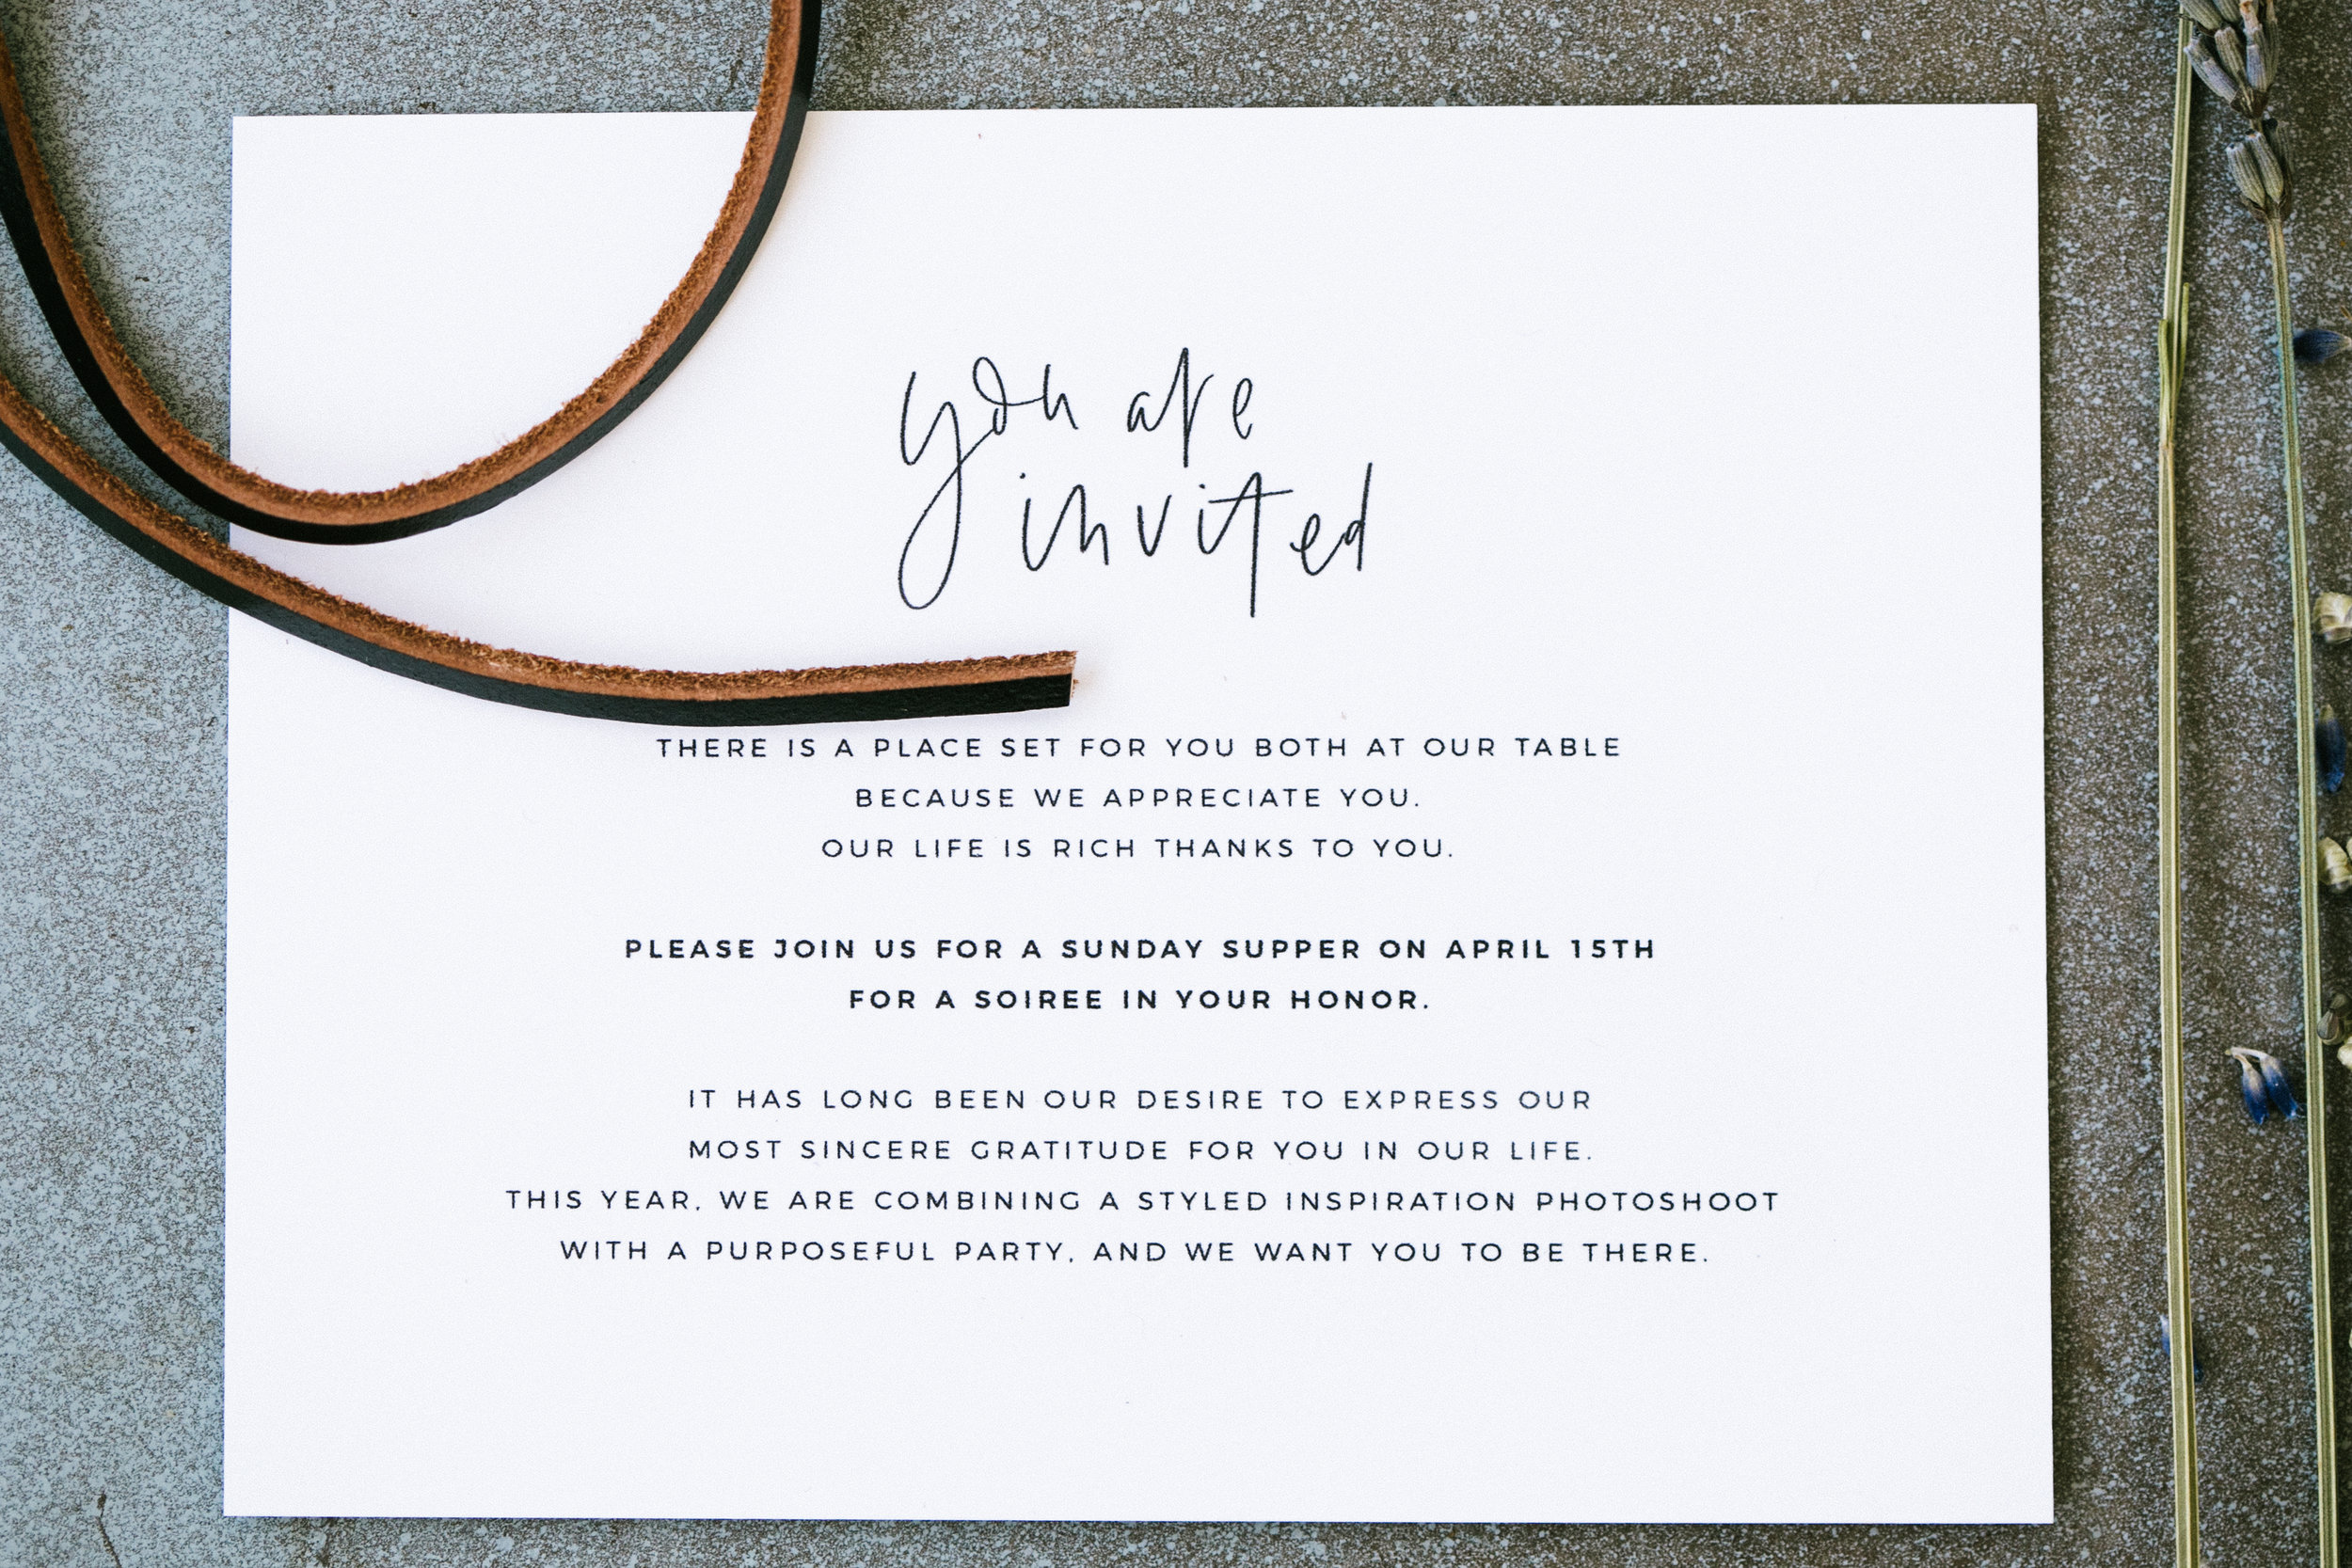 you are
invited
THERE IS A PLACE SET FOR YOU BOTH AT OUR TABLE
BECAUSE WE APPRECIATE YOU.
OUR LIFE IS RICH THANKS TO YOU.
PLEASE JOIN US FOR A SUNDAY SUPPER ON APRIL 15TH
FOR A SOIREE IN YOUR HONOR.
IT HAS LONG BEEN OUR DESIRE TO EXPRESS OUR
MOST SINCERE GRATITUDE FOR YOU IN OUR LIFE.
THIS YEAR, WE ARE COMBINING A STYLED INSPIRATION PHOTOSHOOT
WITH A PURPOSEFUL PARTY, AND WE WANT YOU TO BE THERE.